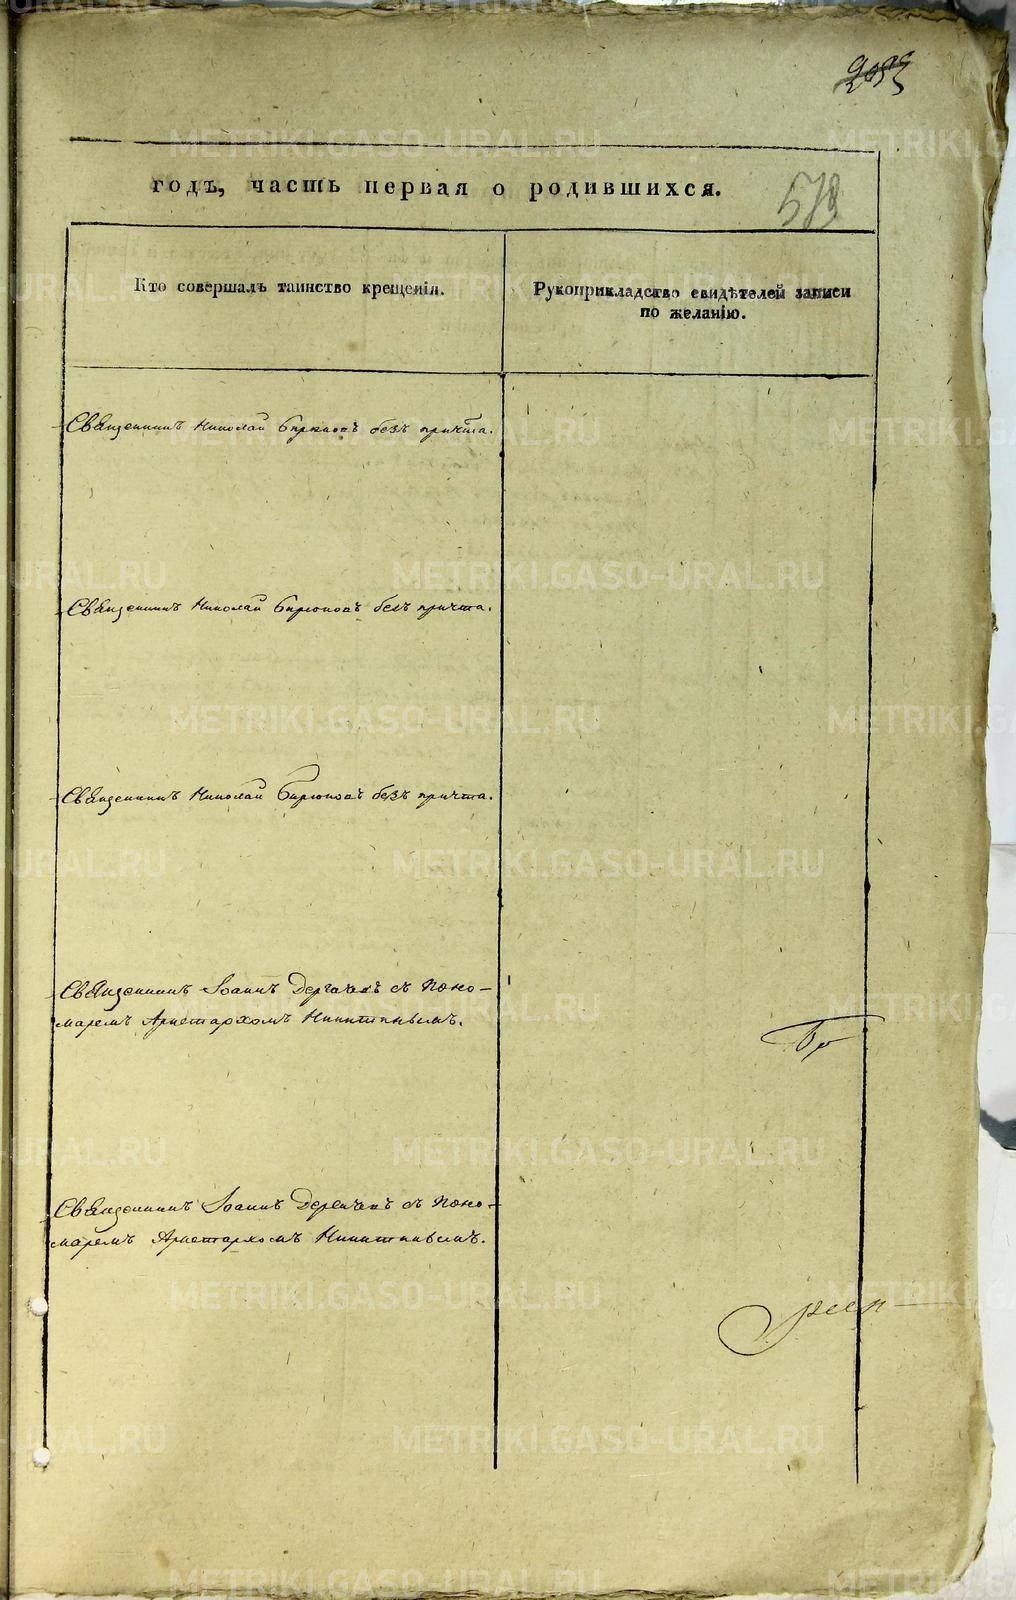 годъ, часть первая о родившихся.
578
Кто совершалъ таинство крещенія.
Рукоприкладство свидѣтелей записи
по желанію.
Священникъ Николай Бирюковъ безъ причта.
Священникъ Николай Бирюковъ безъ причта.
Священникъ Николай Бирюковъ безъ причта.
Священникъ Іоаннъ Дергачевъ съ Поно-
маремъ Аристархомъ
Священникъ Іоаннъ Дергачевъ съ Поно-
маремъ Аристархомъ
METRIKI.GASO-URAL.RU